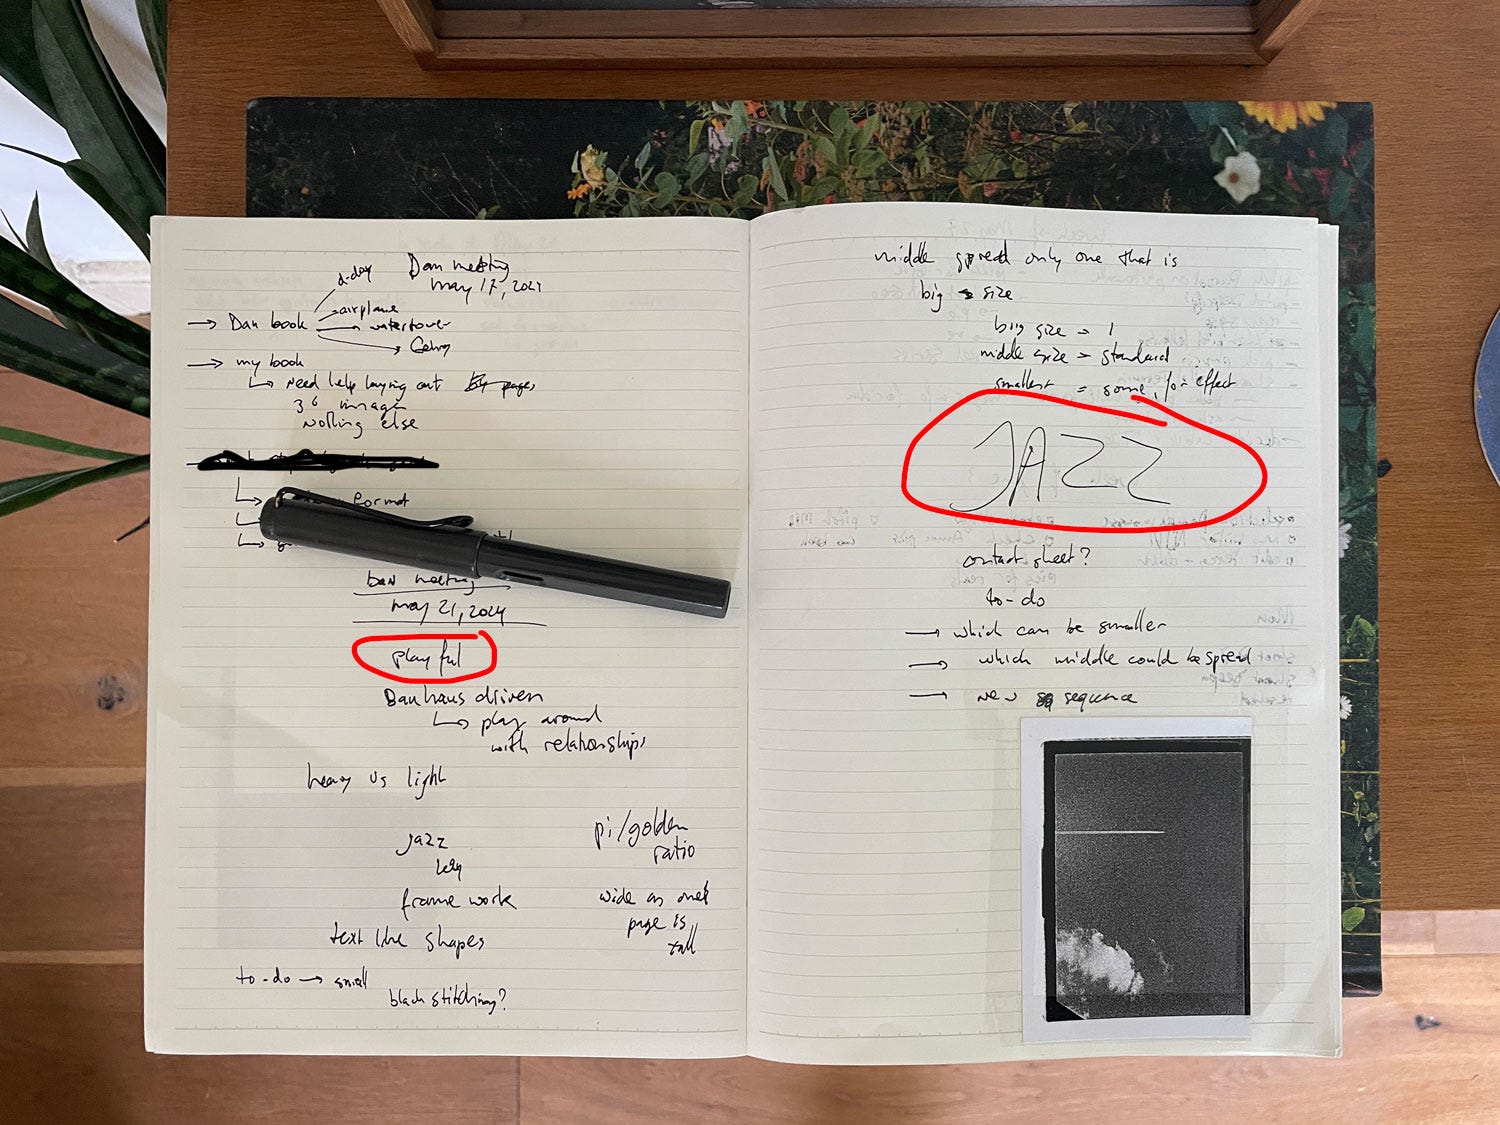 Dan meeting
May 17, 2024
d-day
airplane
→ Dan book
watertower
→ my book
↳ Need help laying out
36 images
Nothing else
format
Dan meeting
May 21, 2024
playful
Bauhaus driven
↳ play around
with relationships
heavy vs light
jazz
pi/golden
ratio
frame work
wide as one
page is
tall
text like shapes
to-do → small
black stitching?
middle spread only one that is
big size
big size = 1
middle size = standard
smallest = some, for effect
JAZZ
contact sheet?
to-do
→ which can be smaller
→ which middle could be spread
→ new sequence